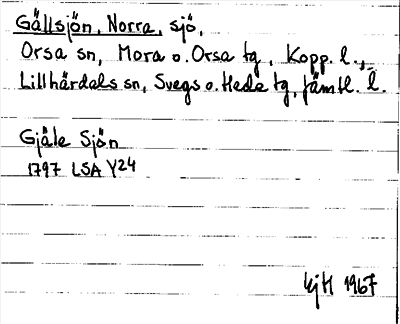 Gällsjön, Norra, sjö,
Orsa sn, Mora o. Orsa tg, Kopp. l.,
Lillhärdals sn, Svegs o. Hede tg, Jämtl. l.
Gjäle Sjön
1797 LSA Y24
1967